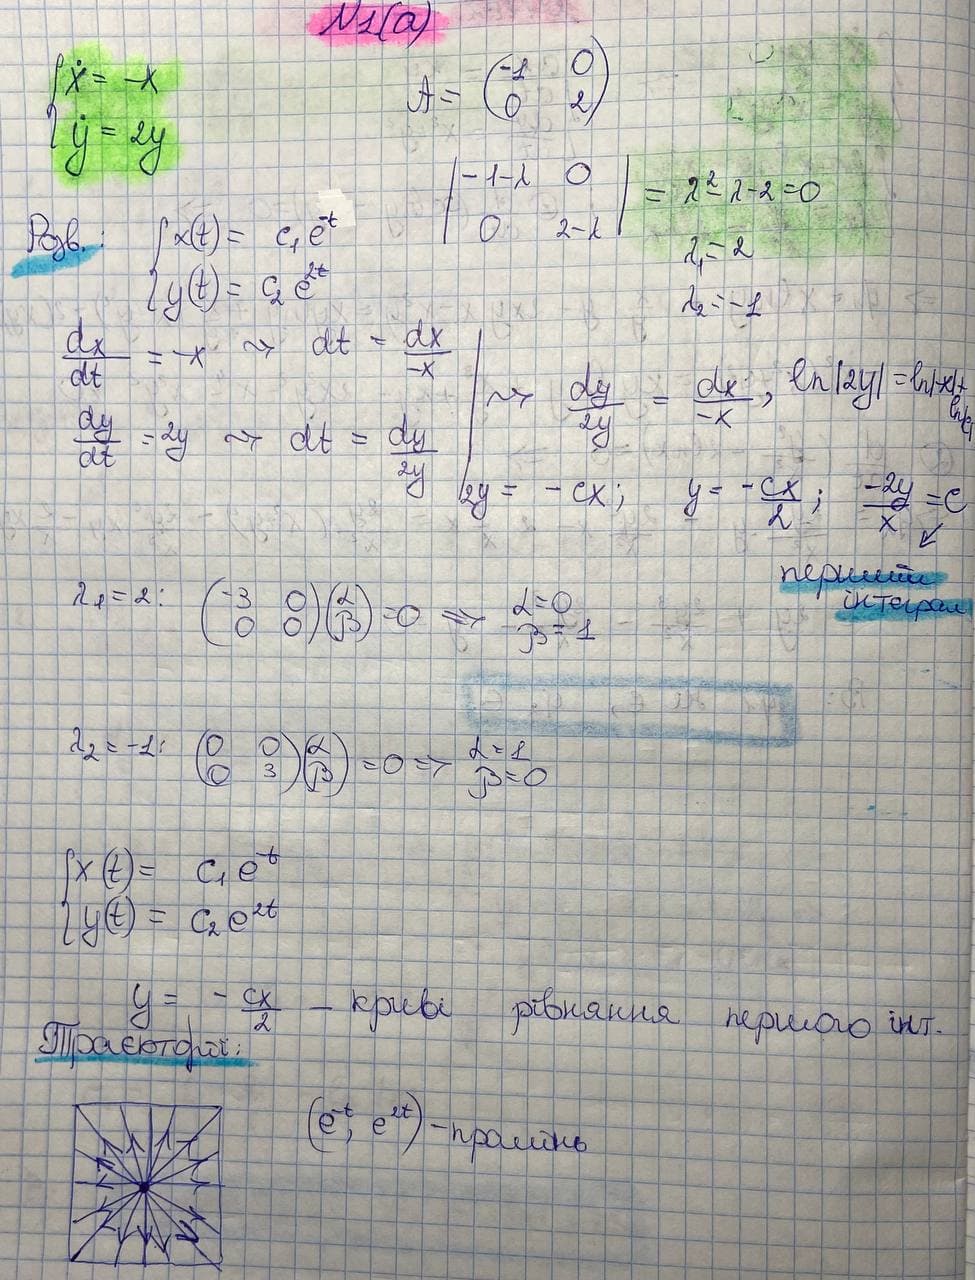 N1(a)
{ẋ = -x
{ẏ = 2y
A = (-1 0
0 2)
|-1-λ 0
0 2-λ| = λ²-λ-2=0
λ₁=2
λ₂=-1
Розв.:
{x(t) = c₁e^-t
{y(t) = c₂e^2t
dx/dt = -x ⇝ dt = dx/-x
dy/dt = 2y ⇝ dt = dy/2y
⇝ dy/2y = dx/-x, ln|2y| = ln|-x| + ln|c|
2y = -cx; y = -cx/2; -2y/x = c
перший
інтеграл
λ₁=2: (-3 0
0 0)(α
β)=0 => α=0
β=1
λ₂=-1: (0 0
0 3)(α
β)=0 => α=1
β=0
{x(t) = c₁e^-t
{y(t) = c₂e^2t
y = -cx/2 - криві рівняння першого інт.
Траєкторії:
(e^-t, e^2t) - промінь